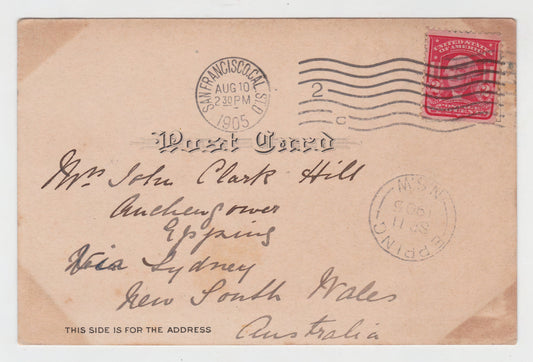 SAN FRANCISCO, CAL. STA. D
AUG 10
2 30 PM
1905
2
UNITED STATES
OF AMERICA
Post Card
Mrs John Clark Hill
Auchengower
Epping
Via Sydney
New South Wales
Australia
EPPING
SP 11
1905
N.S.W
THIS SIDE IS FOR THE ADDRESS